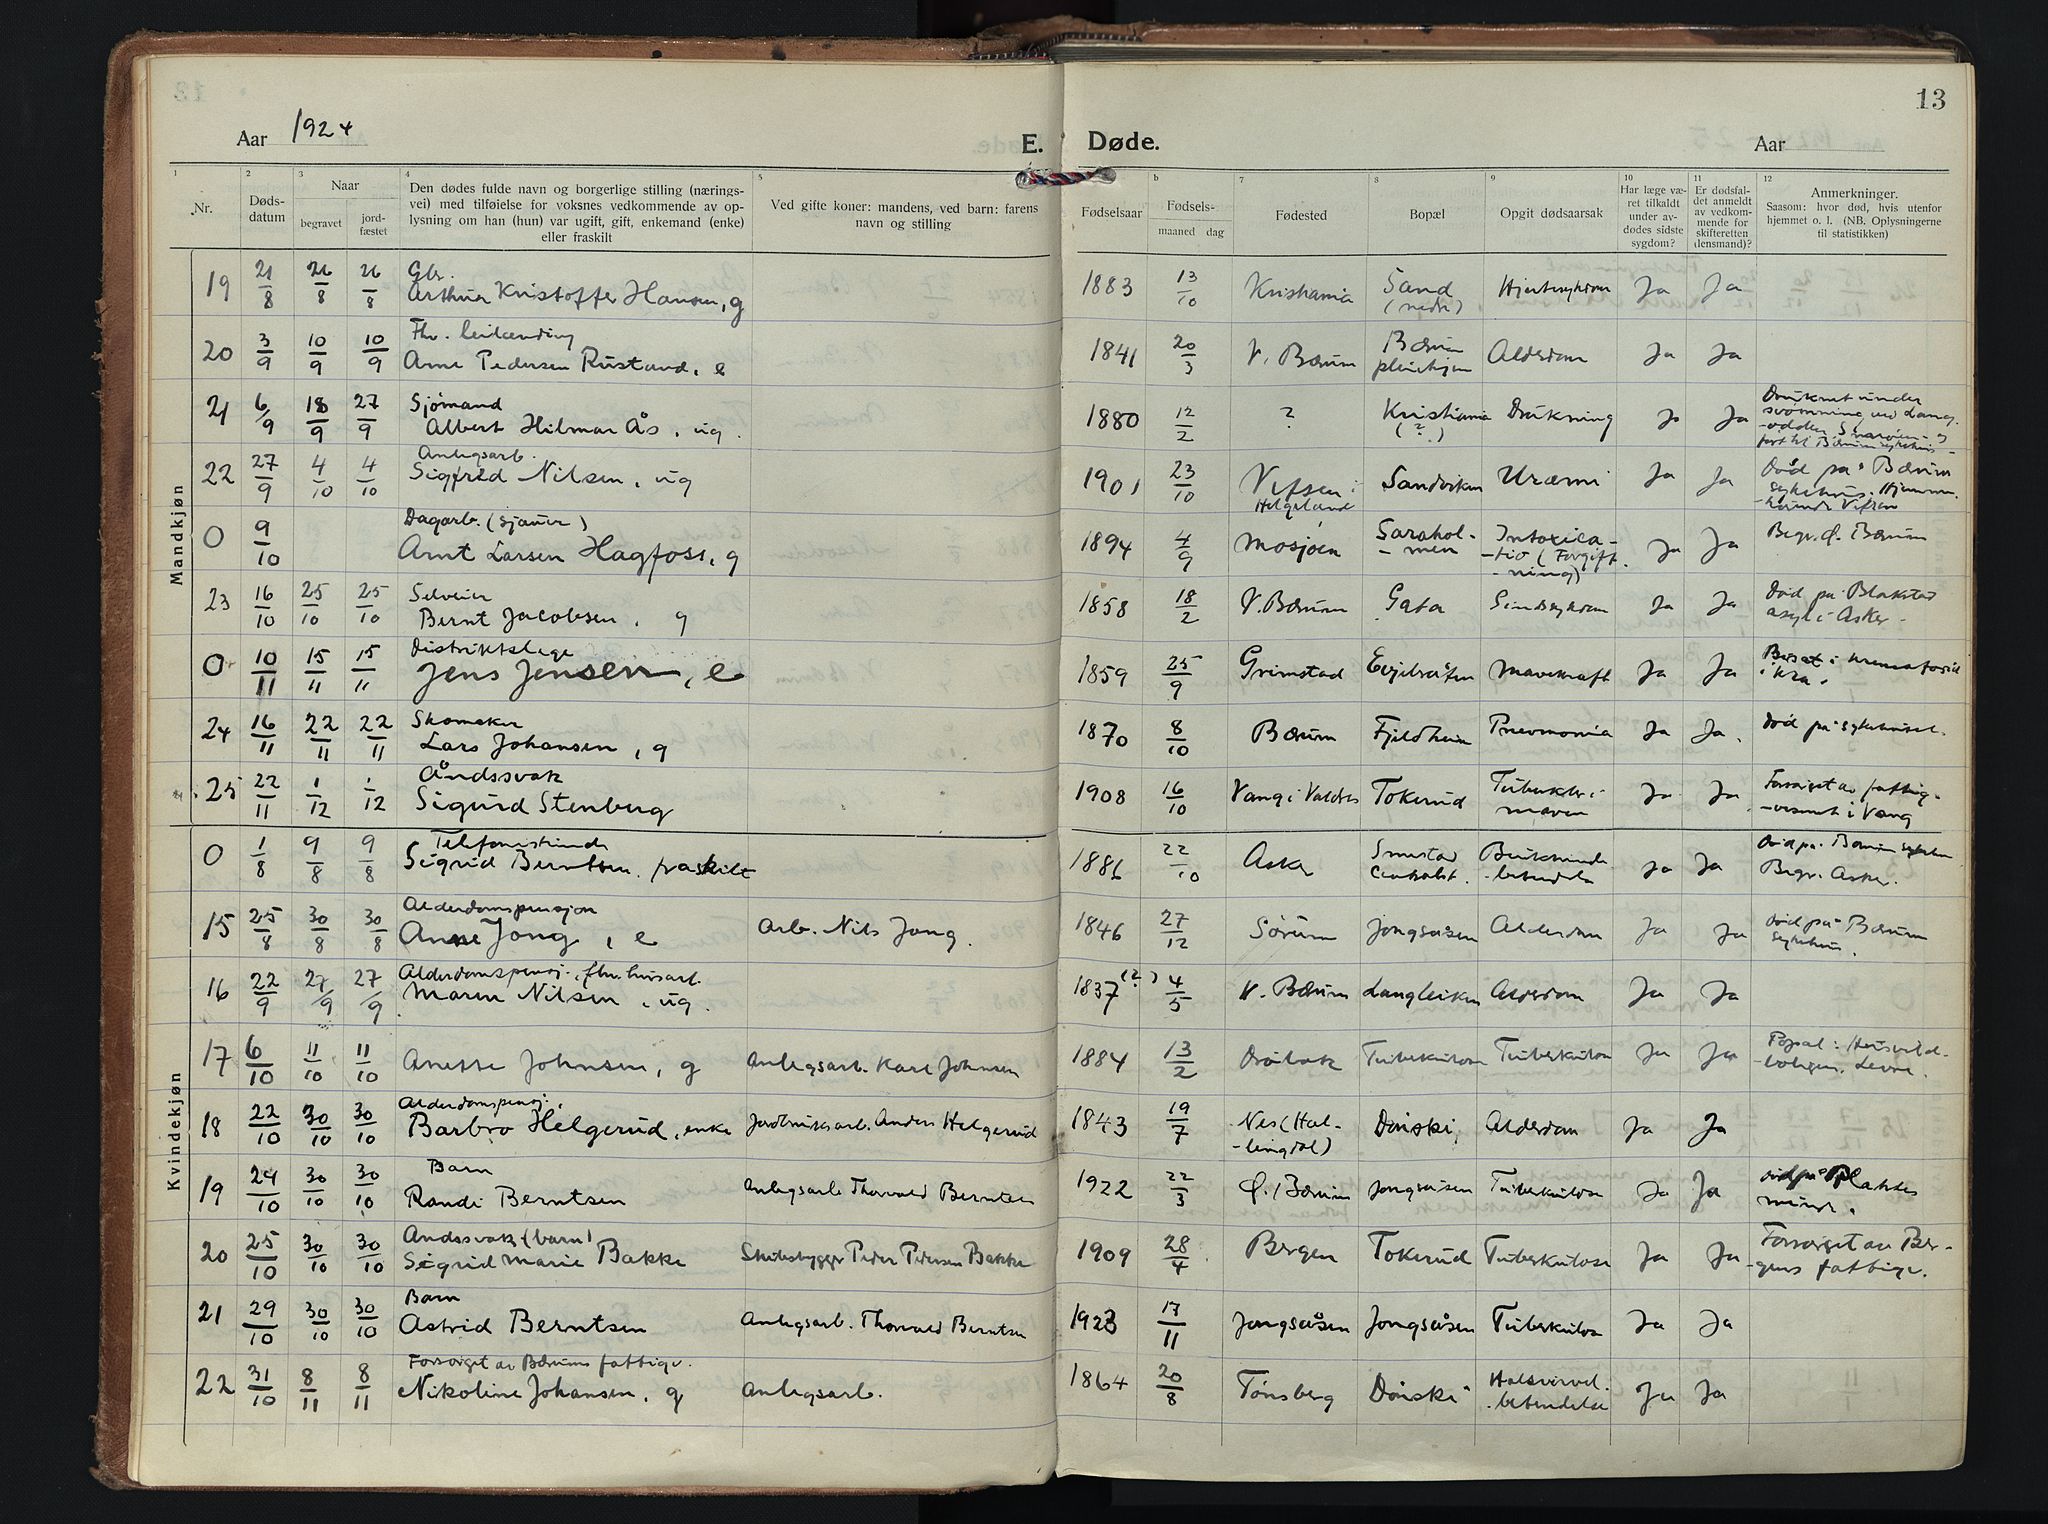 13
Aar 1924 E. Døde. Aar
1 2 3 4 5 b 7 8 9 10 11 12
Nr.
Døds-
datum
Naar
begravet
jord-
fæstet
Den dødes fulde navn og borgerlige stilling (nærings-
vei) med tilføielse for voksnes vedkommende av op-
lysning om han (hun) var ugift, gift, enkemand (enke)
eller fraskilt
Ved gifte koner: mandens, ved barn: farens
navn og stilling
Fødselsaar
Fødsels-
maaned dag
Fødested
Bopæl
Opgit dødsaarsak
Har læge væ-
ret tilkaldt
under av-
dødes sidste
sygdom?
Er dødsfal-
det anmeldt
av vedkom-
mende for
skifteretten
(lensmand)?
Anmerkninger.
Saasom: hvor død, hvis utenfor
hjemmet o. l. (NB. Oplysningerne
til statistikken)
Mandkjøn
Gbr.
19 21/8 26/8 26/8 Arthur Kristoffer Hansen, g 1883 13/10 Kristiania Sand (nedre) Hjertesykdom Ja Ja
Fhv.
20 3/9 10/9 10/9 Arne Pedersen Rustand, e 1841 20/3 V. Bærum Bærum pleiehjem Alderdom Ja Ja
Sjømand
21 6/9 18/9 27/9 Albert Hilmar Ås, ug. 1880 12/2 ? Kristiania (?) Drukning Ja Ja Druknet under svømning ved Lang-odden Snarøen - ført til Bærum sykehus -
Anlegsarb.
22 27/9 4/10 4/10 Sigfred Nilsen, ug 1901 23/10 Vefsen i Helgeland Sandviken Uræmi Ja Ja Død på Bærum sykehus. Hjemmehørende Vefsen
Dagarb. (sjauer)
0 9/10 Arnt Larsen Hagfoss, g 1894 4/9 Mosjøen Sarahol-men Intoxica-tio (Forgift-ning) Ja Ja Begr. Ø. Bærum
Selveier
23 16/10 25/10 25/10 Bernt Jacobsen, g 1858 18/2 V. Bærum Gata Sindssykdom Ja Ja Død på Blakstad asyl i Asker -
Distriktslæge
0 10/11 15/11 15/11 Jens Jensen, e 1859 25/9 Grimstad Evjebråten Mavekraft Ja Ja Bisat i krematoriet i Kra.
Skomaker
24 16/11 22/11 22/11 Lars Johansen, g 1870 8/10 Bærum Fjeldheim Pnevmonia Ja Ja. Død på sykehuset.
Åndssvak
25 22/11 1/12 1/12 Sigurd Stenberg 1908 16/10 Vang i Valdres Tokerud Tuberkler i maven Ja Ja Forsørget av fattig-vesenet i Vang
Kvindekjøn
Telefonistinde
0 1/8 9/8 9/8 Sigrid Berntsen, fraskilt 1886 22/10 Asker Smestad centralst. Bukhinde-betendelse Ja Ja Død på Bærum sykehus Begr. Asker.
Alderdomspensjon
15 25/8 30/8 30/8 Anne Jong, e Arb. Nils Jong. 1846 27/12 Sørum Jongsåsen Alderdom Ja Ja Død på Bærum sykehus.
Alderdomspensj., fhv. husarb.
16 22/9 27/9 27/9 Maren Nilsen, ug. 1837 (?) 4/5 V. Bærum Langleiken Alderdom Ja Ja
17 6/10 11/10 11/10 Anette Johnsen, g Anlegsarb. Karl Johnsen 1884 13/2 Drøbak Tuberkulose Tuberkulose Ja Ja Levre.
Alderdomspensj.
18 22/10 30/10 30/10 Barbro Helgerud, enke Jordbruksarb. Anders Helgerud 1843 19/7 Nes (Hal-lingdal) Dønski Alderdom Ja Ja
Barn
19 24/10 30/10 30/10 Randi Berntsen Anlegsarb. Thorvald Berntsen 1922 22/3 Ø. Bærum Jongsåsen Tuberkulose Ja Ja
Åndssvak (barn)
20 25/10 30/10 30/10 Sigrid Marie Bakke Skibsbygger Peder Pedersen Bakke 1909 28/4 Bergen Tokerud Tuberkulose Ja Ja Forsørget av Ber-gens fattigv.
Barn
21 29/10 30/10 30/10 Astrid Berntsen Anlegsarb. Thorvald Berntsen 1923 17/11 Jongsåsen Jongsåsen Tuberkulose Ja Ja
Forsørget av Bærums fattigv.
22 31/10 8/11 8/11 Nikoline Johansen, g Anlegsarb. 1864 20/8 Tønsberg Dønski Halsvirvel-betendelse Ja Ja